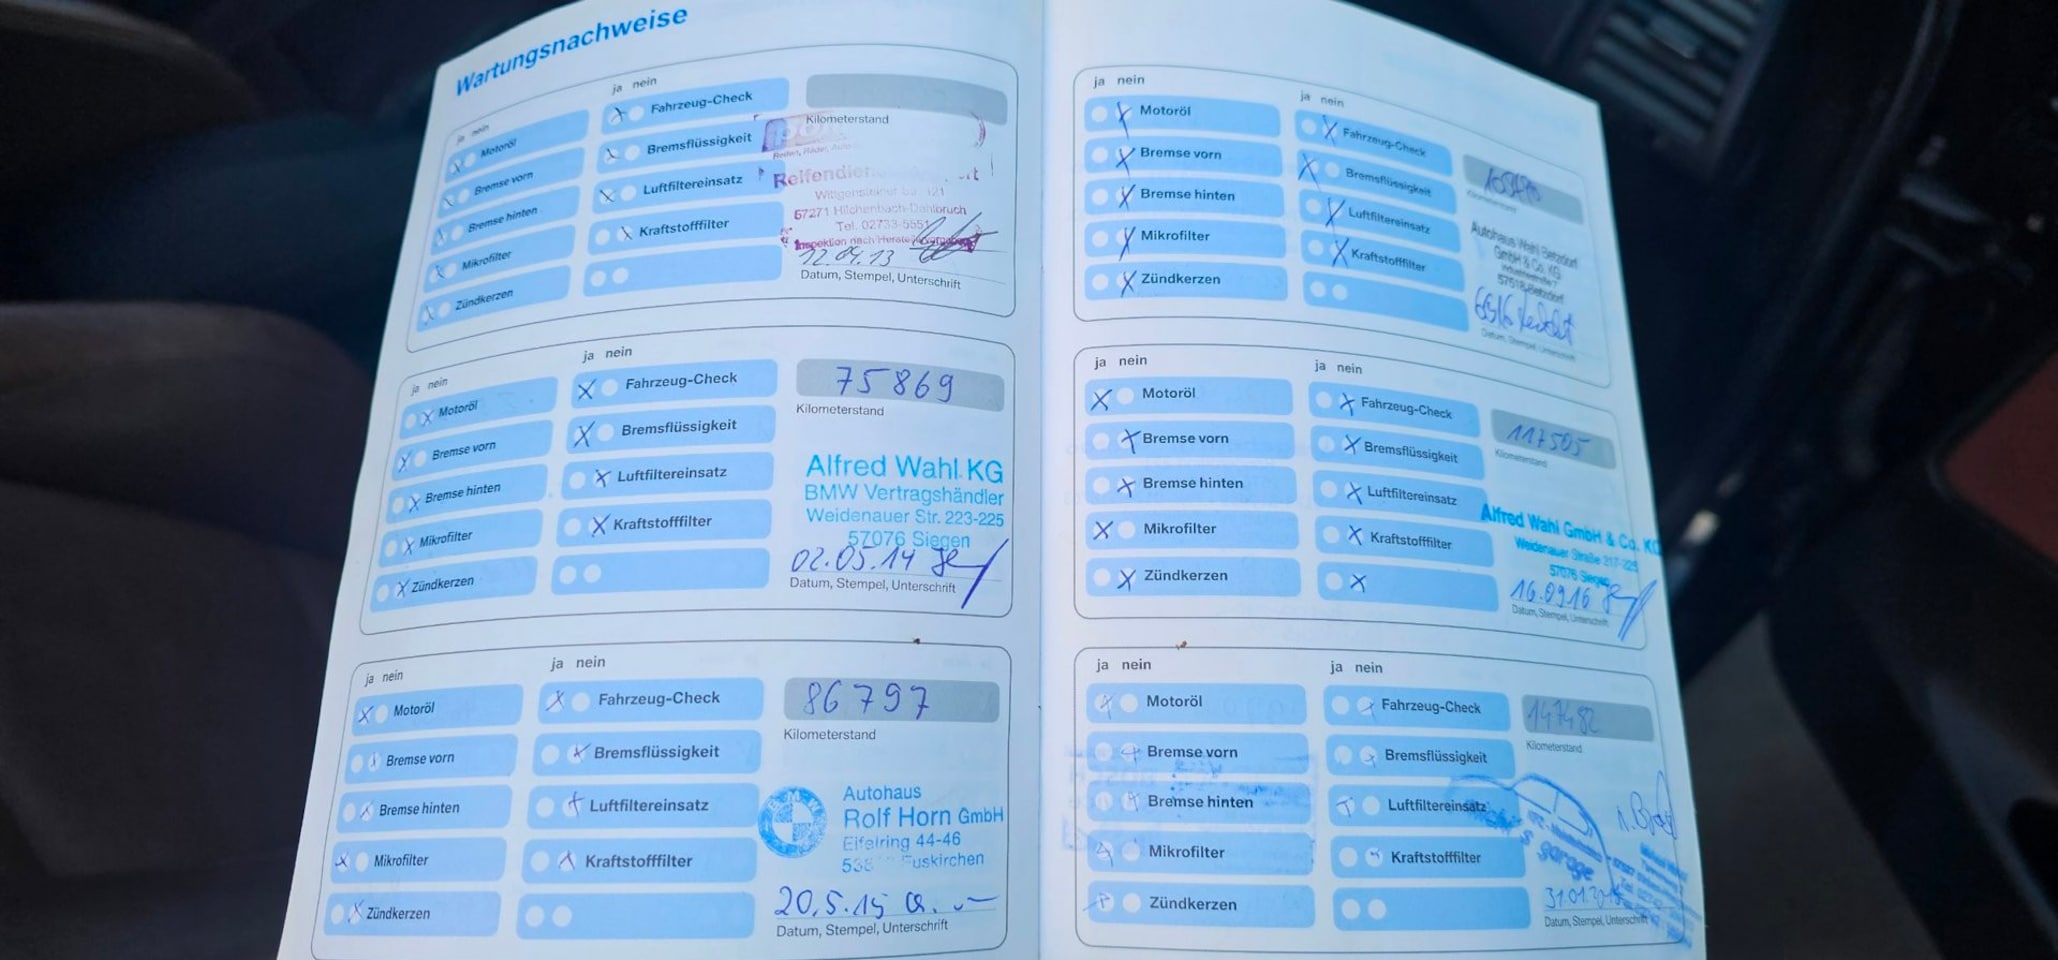 Wartungsnachweise
ja nein
Motoröl
Bremse vorn
Bremse hinten
Mikrofilter
Zündkerzen
ja nein
Fahrzeug-Check
Bremsflüssigkeit
Luftfiltereinsatz
Kraftstofffilter
Kilometerstand
57271 Hilchenbach-Dahlbruch
Inspektion nach
12.04.13
Datum, Stempel, Unterschrift
ja nein
Motoröl
Bremse vorn
Bremse hinten
Mikrofilter
Zündkerzen
ja nein
Fahrzeug-Check
Bremsflüssigkeit
Luftfiltereinsatz
Kraftstofffilter
75869
Kilometerstand
Alfred Wahl KG
BMW Vertragshändler
Weidenauer Str. 223-225
57076 Siegen
02.05.14
Datum, Stempel, Unterschrift
ja nein
Motoröl
Bremse vorn
Bremse hinten
Mikrofilter
Zündkerzen
ja nein
Fahrzeug-Check
Bremsflüssigkeit
Luftfiltereinsatz
Kraftstofffilter
86797
Kilometerstand
BMW
Autohaus
Rolf Horn GmbH
Eifelring 44-46
20.5.15
Datum, Stempel, Unterschrift
ja nein
Motoröl
Bremse vorn
Bremse hinten
Mikrofilter
Zündkerzen
ja nein
Fahrzeug-Check
Bremsflüssigkeit
Luftfiltereinsatz
Kraftstofffilter
Kilometerstand
Autohaus Wahl Betzdorf
GmbH & Co. KG
57518 Betzdorf
Datum, Stempel, Unterschrift
ja nein
Motoröl
Bremse vorn
Bremse hinten
Mikrofilter
Zündkerzen
ja nein
Fahrzeug-Check
Bremsflüssigkeit
Luftfiltereinsatz
Kraftstofffilter
117505
Kilometerstand
Alfred Wahl GmbH & Co. KG
Weidenauer Straße 217-225
57076 Siegen
16.09.16
Datum, Stempel, Unterschrift
ja nein
Motoröl
Bremse vorn
Bremse hinten
Mikrofilter
Zündkerzen
ja nein
Fahrzeug-Check
Bremsflüssigkeit
Luftfiltereinsatz
Kraftstofffilter
147482
Kilometerstand
garage
Datum, Stempel, Unterschrift